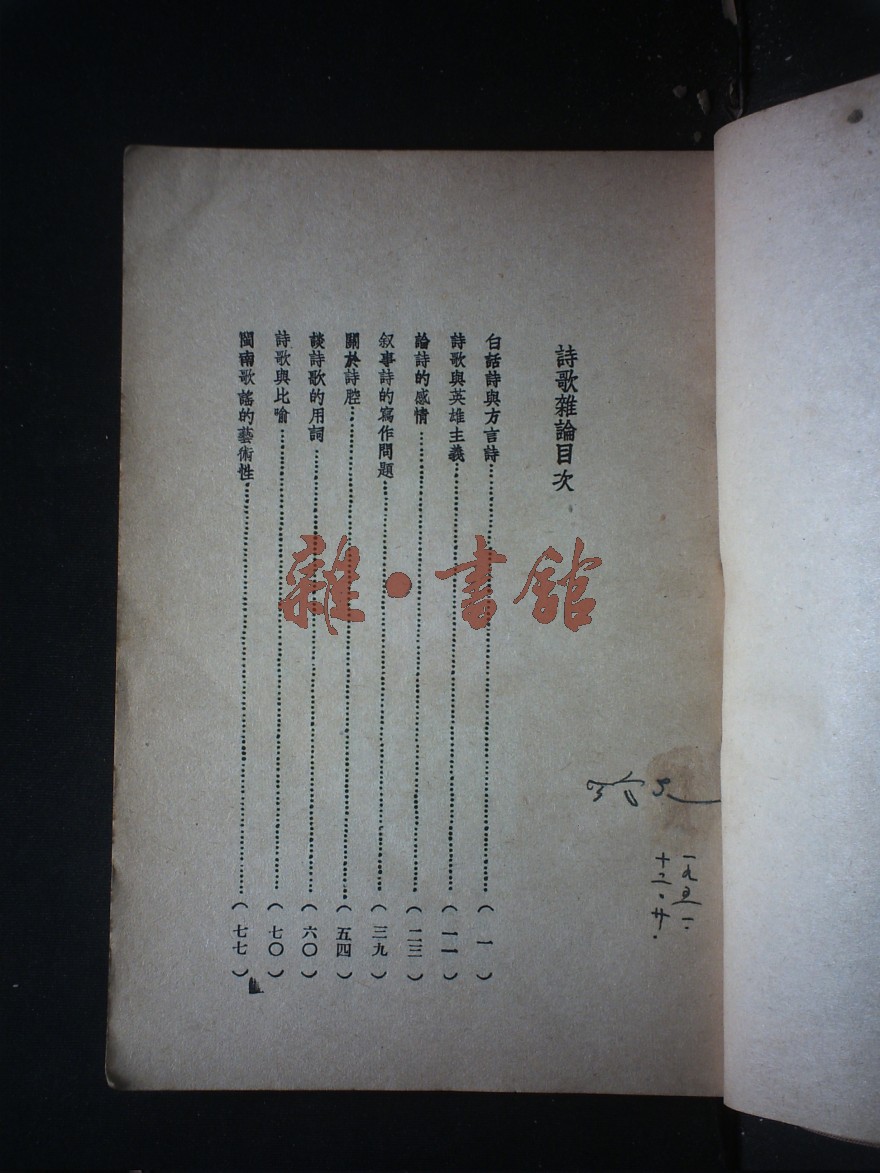 詩歌雜論目次
白話詩與方言詩……(一)
詩歌與英雄主義……(一一)
論詩的感情……(二三)
叙事詩的寫作問題……(三九)
關於詩腔……(五四)
談詩歌的用詞……(六〇)
詩歌與比喻……(七〇)
閩南歌謠的藝術性……(七七)
雜·書館
一九五一·
十二·廿·